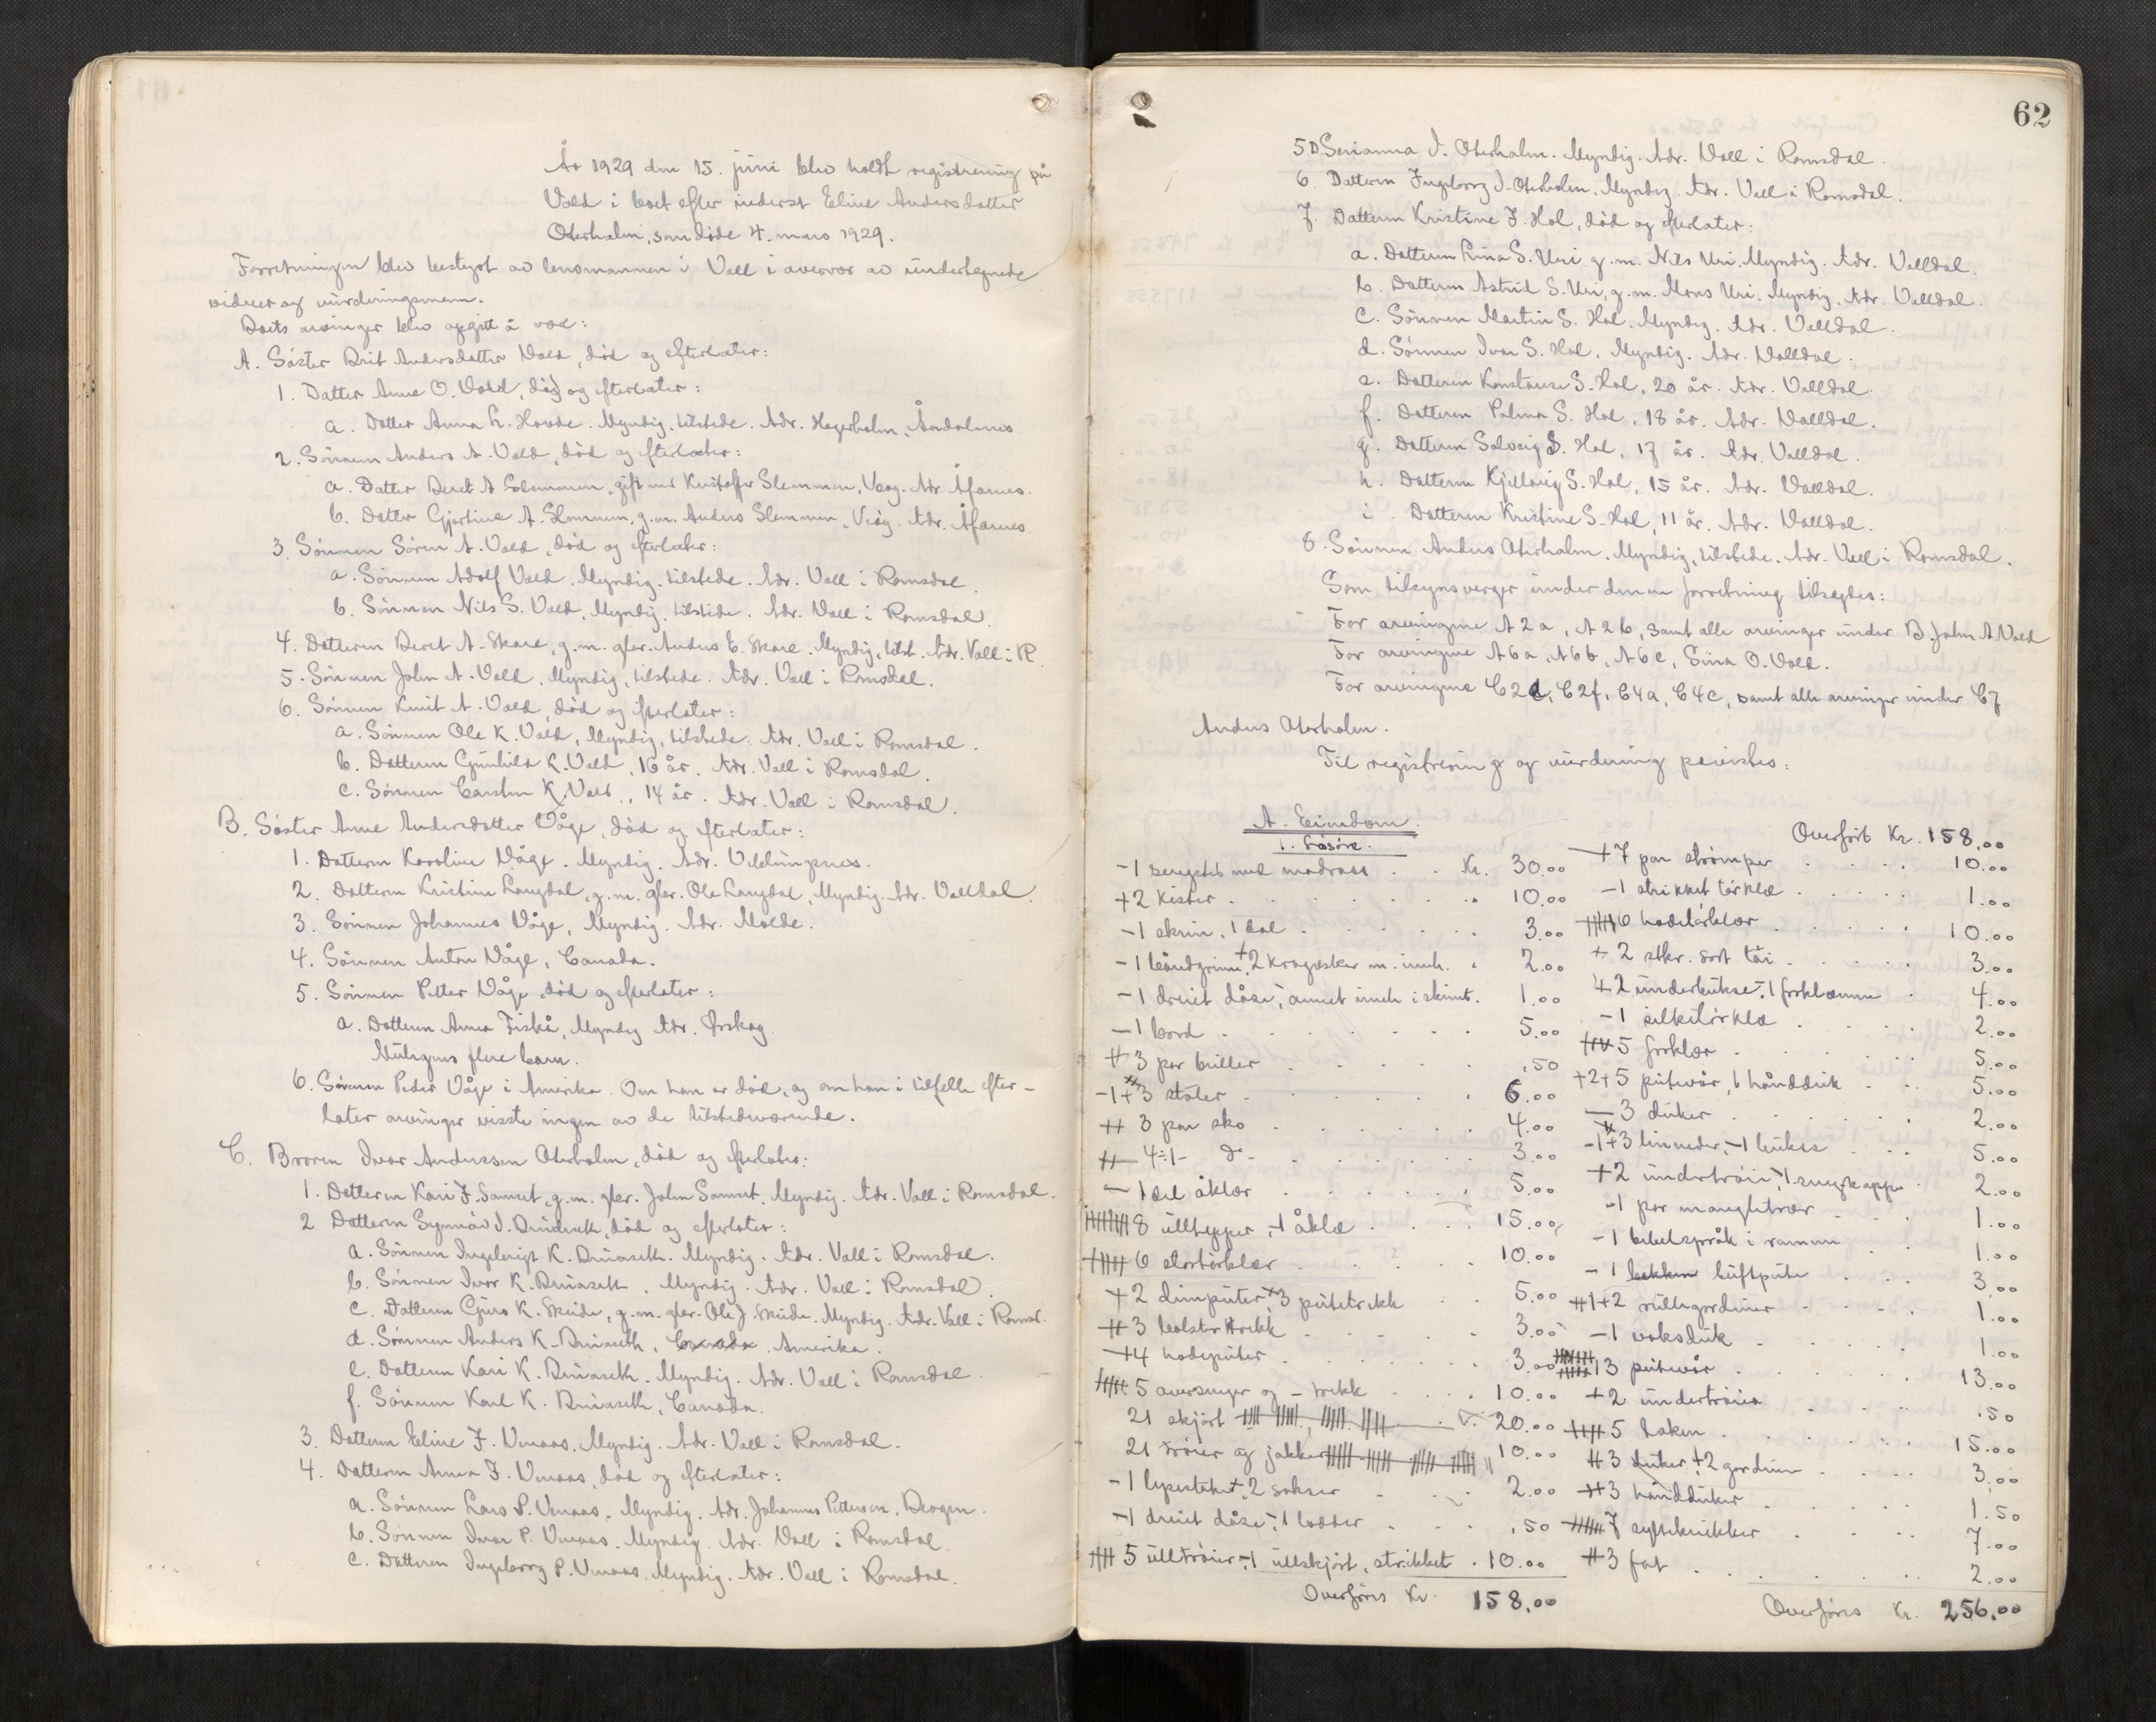 År 1929 den 15. juni blev holdt registrering på
Vold i boet efter inderst Eline Andersdatter
Oterholm, som døde 4. mars 1929.
Forretningen blev bestyrt av lensmannen i Voll i overvær av undertegnede
vidner og vurderingsmenn.
Boets arvinger blev opgitt å være:
A. Søster Brit Andersdatter Vold, død og efterlater:
1. Datter Anne O. Vold, død og efterlater:
a. Datter Anna L. Hovde. Myndig, tilstede. Adr. Hagerholm, Åndalsnes.
2. Sønnen Anders A. Vold, død og efterlater:
a. Datter Beret A Slemmen, gift med Kristoffer Slemmen, Veøy. Adr. Åfarnes.
b. Datter Gjertine A. Slemmen, g.m. Anders Slemmen, Veøy. Adr. Åfarnes.
3. Sønnen Søren A. Vold, død og efterlater:
a. Sønnen Adolf Vold. Myndig, tilstede. Adr. Voll i Romsdal.
b. Sønnen Nils S. Vold, Myndig, tilstede. Adr. Voll i Romsdal.
4. Datteren Beret A. Skare, g.m. gbr. Anders E. Skare. Myndig, tilst. Adr. Voll i R.
5. Sønnen John A. Vold. Myndig, tilstede. Adr. Voll i Romsdal.
6. Sønnen Knut A. Vold, død og efterlater:
a. Sønnen Ole K. Vold, Myndig, tilstede. Adr. Voll i Romsdal.
b. Datteren Gunhild K. Vold, 16 år. Adr. Voll i Romsdal.
c. Sønnen Carsten K. Vold, 14 år. Adr. Voll i Romsdal.
B. Søster Anne Andersdatter Våge, død og efterlater:
1. Datteren Karoline Våge. Myndig. Adr.
2. Datteren Kristine Langdal, g.m. gbr. Ole Langdal, Myndig. Adr. Valldal.
3. Sønnen Johannes Våge, Myndig. Adr. Molde.
4. Sønnen Anton Våge, Canada.
5. Sønnen Petter Våge, død og efterlater:
a. Datteren Anna Fiskå, Myndig Adr. Ørskog.
Muligens flere barn.
6. Sønnen Peder Våge i Amerika. Om han er død, og om han i tilfelle efter-
later arvinger visste ingen av de tilstedeværende.
C. Broren Iver Anderssen Oterholm, død og efterlater:
1. Datteren Kari I. Samset, g.m. gbr. John Samset. Myndig. Adr. Voll i Romsdal.
2 Datteren Synnøv I. Bruaseth, død og efterlater:
a. Sønnen Ingebrigt K. Bruaseth. Myndig. Adr. Voll i Romsdal.
b. Sønnen Iver K. Bruaseth. Myndig. Adr. Voll i Romsdal.
c. Datteren Guro K. Skeide, g.m. gbr. Ole J. Skeide. Myndig. Adr. Voll i Romsd.
d. Sønnen Anders K. Bruaseth, Canada Amerika.
e. Datteren Kari K. Bruaseth. Myndig. Adr. Voll i Romsdal.
f. Sønnen Karl K. Bruaseth, Canada.
3. Datteren Eline I. Unaas. Myndig. Adr. Voll i Romsdal.
4. Datteren Anna I. Unaas, død og efterlater:
a. Sønnen Lars P. Unaas. Myndig. Adr. Johannes Petterson, Bergen.
b. Sønnen Iver P. Unaas. Myndig. Adr. Voll i Romsdal.
c. Datteren Ingeborg P. Unaas. Myndig. Adr. Voll i Romsdal.
62
5 D. Serianna I. Oterholm. Myndig. Adr. Voll i Romsdal.
6. Datteren Ingeborg I. Oterholm. Myndig. Adr. Voll i Romsdal.
7. Datteren Kristine I. Hol, død og efterlater:
a. Datteren Lina S. Uri g.m. Nils Uri. Myndig. Adr. Valldal.
b. Datteren Astrid S. Uri, g.m. Mons Uri. Myndig. Adr. Valldal.
c. Sønnen Martin S. Hol. Myndig. Adr. Valldal.
d. Sønnen Iver S. Hol. Myndig. Adr. Valldal.
e. Datteren Konstanse S. Hol, 20 år. Adr. Valldal.
f. Datteren Palma S. Hol, 18 år. Adr. Valldal.
g. Datteren Solveig S. Hol, 17 år. Adr. Valldal.
h. Datteren Kjellaug S. Hol, 15 år. Adr. Valldal.
i. Datteren Kristine S. Hol, 11 år. Adr. Valldal.
8. Sønnen Anders Oterholm. Myndig, tilstede. Adr. Voll i Romsdal.
Som tilsynsverger under denne forretning tilsagdes:
For arvingene A 2 a, A 2 b, samt alle arvinger under B. John A. Vold
For arvingene A 6 a, A 6 b, A 6 c, Sina O. Vold.
For arvingene C 2 d, C 2 f, C 4 a, C 4 c, samt alle arvinger under C 7
Anders Oterholm.
Til registrering og vurdering påvistes:
A. Eiendom.
1. Løsøre.
- 1 sengsted med madrass . . Kr. 30.00
+ 2 kister . . . 10.00
- 1 skrin, 1 dal . . . 3.00
- 1 båndgrind + 2 kragesker m. innh. . 2.00
- 1 dreiet dåse, - annet innh i skinnt. 1.00
- 1 bord . . . 5.00
3 par briller . . . .50
- 1 + 3 stoler . . . 6.00
3 par sko . . . 4.00
4 - 1 - do - . . . 3.00
- 1 del åklær . . . 5.00
8 ulltepper, - 1 åklæ . . . 15.00
6 stortørklær . . . 10.00
+ 2 dunputer, + 3 putetrekk . . 5.00
3 bolstertrekk . . . 3.00
4 hodeputer . . . 3.00
5 oversenger og - trekk . . . 10.00
21 skjørt . . . 20.00
21 trøier og jakker 10.00
- 1 lysestake + 2 sakser . . . 2.00
- 1 dreiet dåse, - 1 lodder . . . .50
5 ulltrøier - 1 ullskjørt, strikket . 10.00
Overføres Kr. 158.00
Overført Kr. 158.00
7 par strømper . . . 10.00
- 1 strikket tørklæ . . . 1.00
6 hodetørklær . . . 10.00
+ 2 stkr. sort tøi . . . 3.00
+ 2 underbukse - 1 forklæemne . 4.00
- 1 silketørklæ . . . 2.00
5 forklær . . . 5.00
+ 2 + 5 putevår, 1 håndduk . . 5.00
3 duker . . . 2.00
- 1 + 3 linneder, - 1 bukse . . . 5.00
+ 2 undertrøie, - 1 regnkappe . 2.00
- 1 par mangletrær . . . 1.00
- 1 bibelspråk i ramme . . . 1.00
- 1 bekken luftpute . . . 3.00
1 + 2 rullegardiner . . . 1.00
- 1 voksduk . . . 1.00
13 putevår . . . 13.00
+ 2 undertrøier . . . .50
5 laken . . . 15.00
3 duker + 2 gardiner . . . 3.00
3 håndduker . . . 1.50
7 sylteknekker . . . 7.00
3 fat . . . 2.00
Overføres Kr. 256.00